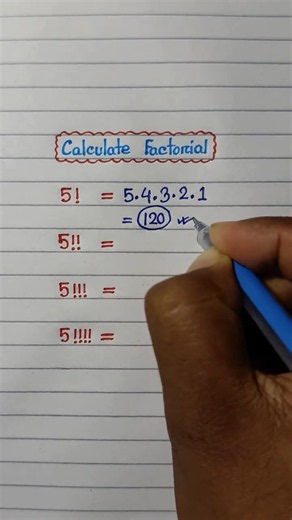 Calculate Factorial
5! = 5.4.3.2.1
= 120
5!! =
5!!! =
5!!!! =